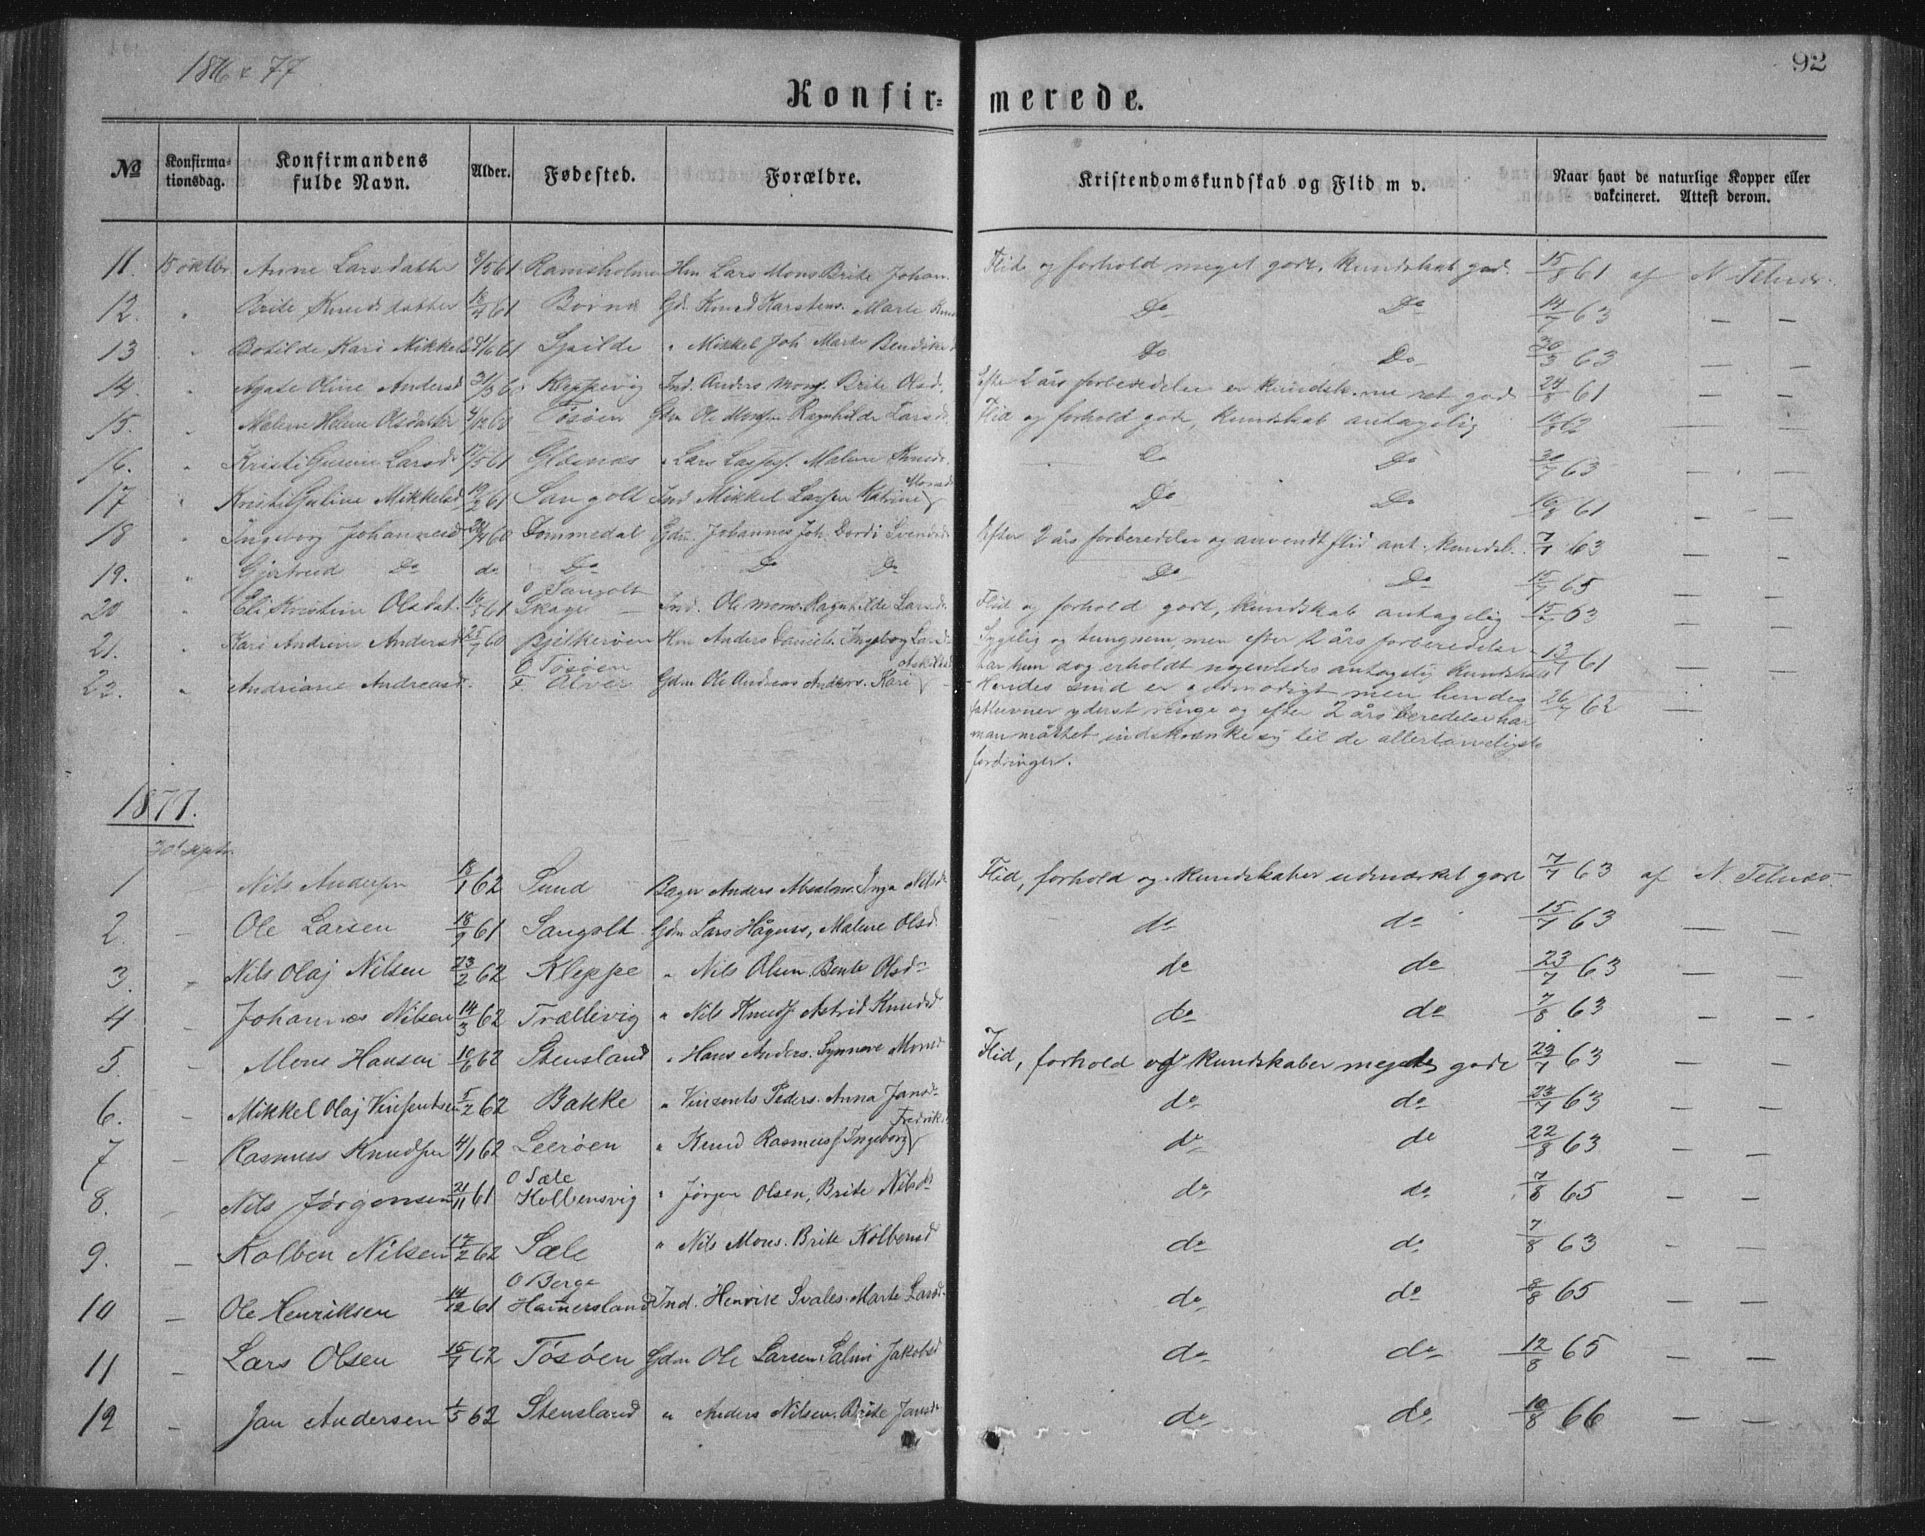 1876 & 77
92
Konfir= merede.
No Konfirma=tionsdag. Konfirmandens fulde Navn. Alder. Fødested. Forældre. Kristendomskundskab og Flid m v. Naar havt de naturlige Kopper eller vakcineret. Attest derom.
11. 15 oktbr Anne Larsdatter 9/5 61 Ramsholmen Hm Lars Mons. Brite Johan. Flid og forhold meget godt, kundskab god. 15/8 61 af N.
12. " Brite Knudsdatter 18/4 61 Gdm Knud Karstens. Marte Do Do 14/7 63 — —
13 " Botilde Kari Mikkelsd 61 " Mikkel Joh. Marte Bendiksd Do Do 30/3 63 — —
14. " Agate Oline Andersd. Ind. Anders Mons. Brite Olsd. Efter 2 års forberedelse er kundsk. nu ret god 24/8 61 — —
15. " Malene Helene Olsdatter Tosøen Gdm Ole Monsen Ragnhilde Larsd. Flid og forhold gode, kundskab antagelig 62 — —
16. " Kristi Larsd. 61 " Lars Malene Knuds. Do Do 63 — —
17 " Kristi Guline Mikkelsd 61 Sangolt Ind Mikkel Larsen Katrine Monsd Do Do 61 — —
18 " Ingeborg Johannesd 60 Dommedal Gdm. Johannes Joh. Dordi Svendsd Efter 2 års forberedelse og anvendt flid ant. kundsk. 7/7 63 — —
19. " Gjertrud Do do Do Do Do Do Do 15/7 65 — —
20 " Eli Kristine Olsdat. 61 O Sangolt Skage — Ind. Ole Mons. Ragnhilde Larsd. Flid og forhold godt, kundskab antagelig 15/7 63 — —
21. " Kari Andrine Andersd. 25/7 60 Bjelkerøen Hm Anders Daniels. Ingeborg Larsd. Sygelig og tungnem, men efter 2 års forberedelse
har hun dog erholdt nogenledes antagelig kundskab 13/7 61 — —
23. " Andriane Andreasd. O Tosøen F Alver Gdm Ole Andreas Anders. Kari Askildsd Hendes sind er godmodigt men hendes
fatteevner yderst ringe og efter 2 års beredelse har 26/7 62 —
man måttet indskrænke sig til de allertarveligste
fordringer.
1877.
30te septbr.
1 — Nils Andersen 18/1 62 Sund Anders Absalons. Inga Nilsd Flid, forhold og kundskaber udmærket gode 7/7 63 af N.
2. — Ole Larsen 18/9 61 Sangolt Gdm Lars Hågens, Malene Olsd. do do 15/7 63 — —
3. — Nils Olaj Nilsen 23/2 62 Kleppe " Nils Olsen. Bente Olsd. do do 23/7 63 — —
4 — Johannes Nilsen 14/3 62 Trællevig " Nils Knuds. Astrid Knudsd do do 7/8 63 — —
5. — Mons Hansen 10/6 62 Stensland " Hans Anders. Synnøve Monsd Flid, forhold og kundskaber meget gode 23/7 63 — —
6. — Mikkel Olaj Vinsentsen 5/2 62 Bakke " Vinsents Peders. Anna Jansd. do do 23/7 63 — —
7 — Rasmus Knudsen 4/1 62 Leerøen " Knud Rasmuss. Ingeborg Fredriks. do do 22/8 63 — —
8. — Nils Jørgensen 21/11 61 O Sæle Kolbensvig " Jørgen Olsen, Brite Nilsd. do do 7/8 65 — —
9. — Kolben Nilsen 17/2 62 Sæle " Nils Mons. Brite Kolbensd do do 7/8 63 — —
10 — Ole Henriksen 14/12 61 O Berge Hamersland Ind. Henrik Marte Larsd. do do 8/8 65 — —
11 — Lars Olsen 15/7 62 Tosøen Gdm Ole Larsen Jakobsd do do 12/8 65 — —
12 — Jan Andersen 1/5 62 Stensland " Anders Nilsen. Brite Jansd. do do 10/8 66 — —